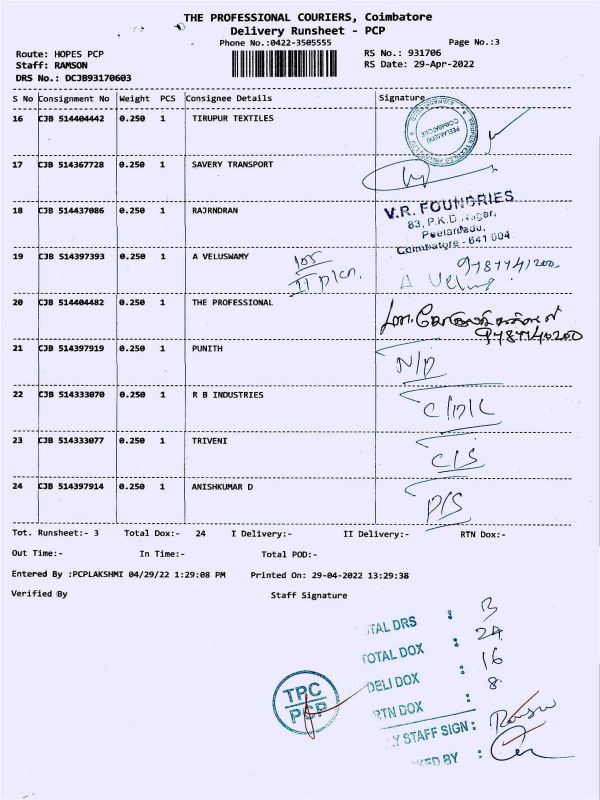 THE PROFESSIONAL COURIERS, Coimbatore
Delivery Runsheet - PCP
Phone No.:0422-3505555
Page No.:3
Route: HOPES PCP
RS No.: 931706
Staff: RAMSON
RS Date: 29-Apr-2022
DRS No.: DCJB93170603
S No Consignment No Weight PCS Consignee Details Signature
16 CJB 514404442 0.250 1 TIRUPUR TEXTILES
PEELAMEDU
COIMBATORE
17 CJB 514367728 0.250 1 SAVERY TRANSPORT
18 CJB 514437086 0.250 1 RAJRNDRAN
V.R. FOUNDRIES
83, P.K.D. Nagar,
Peelamedu,
Coimbatore - 641 004
19 CJB 514397393 0.250 1 A VELUSWAMY
9787741200
A Velu
20 CJB 514404482 0.250 1 THE PROFESSIONAL
9787740200
21 CJB 514397919 0.250 1 PUNITH
N/D
22 CJB 514333070 0.250 1 R B INDUSTRIES
C/D/L
23 CJB 514333077 0.250 1 TRIVENI
C/S
24 CJB 514397914 0.250 1 ANISHKUMAR D
P/S
Tot. Runsheet:- 3 Total Dox:- 24 I Delivery:- II Delivery:- RTN Dox:-
Out Time:- In Time:- Total POD:-
Entered By :PCPLAKSHMI 04/29/22 1:29:08 PM Printed On: 29-04-2022 13:29:38
Verified By Staff Signature
TAL DRS : 3
TOTAL DOX : 24
DELI DOX : 16
RTN DOX : 8
LY STAFF SIGN :
KED BY :
TPC
PCP